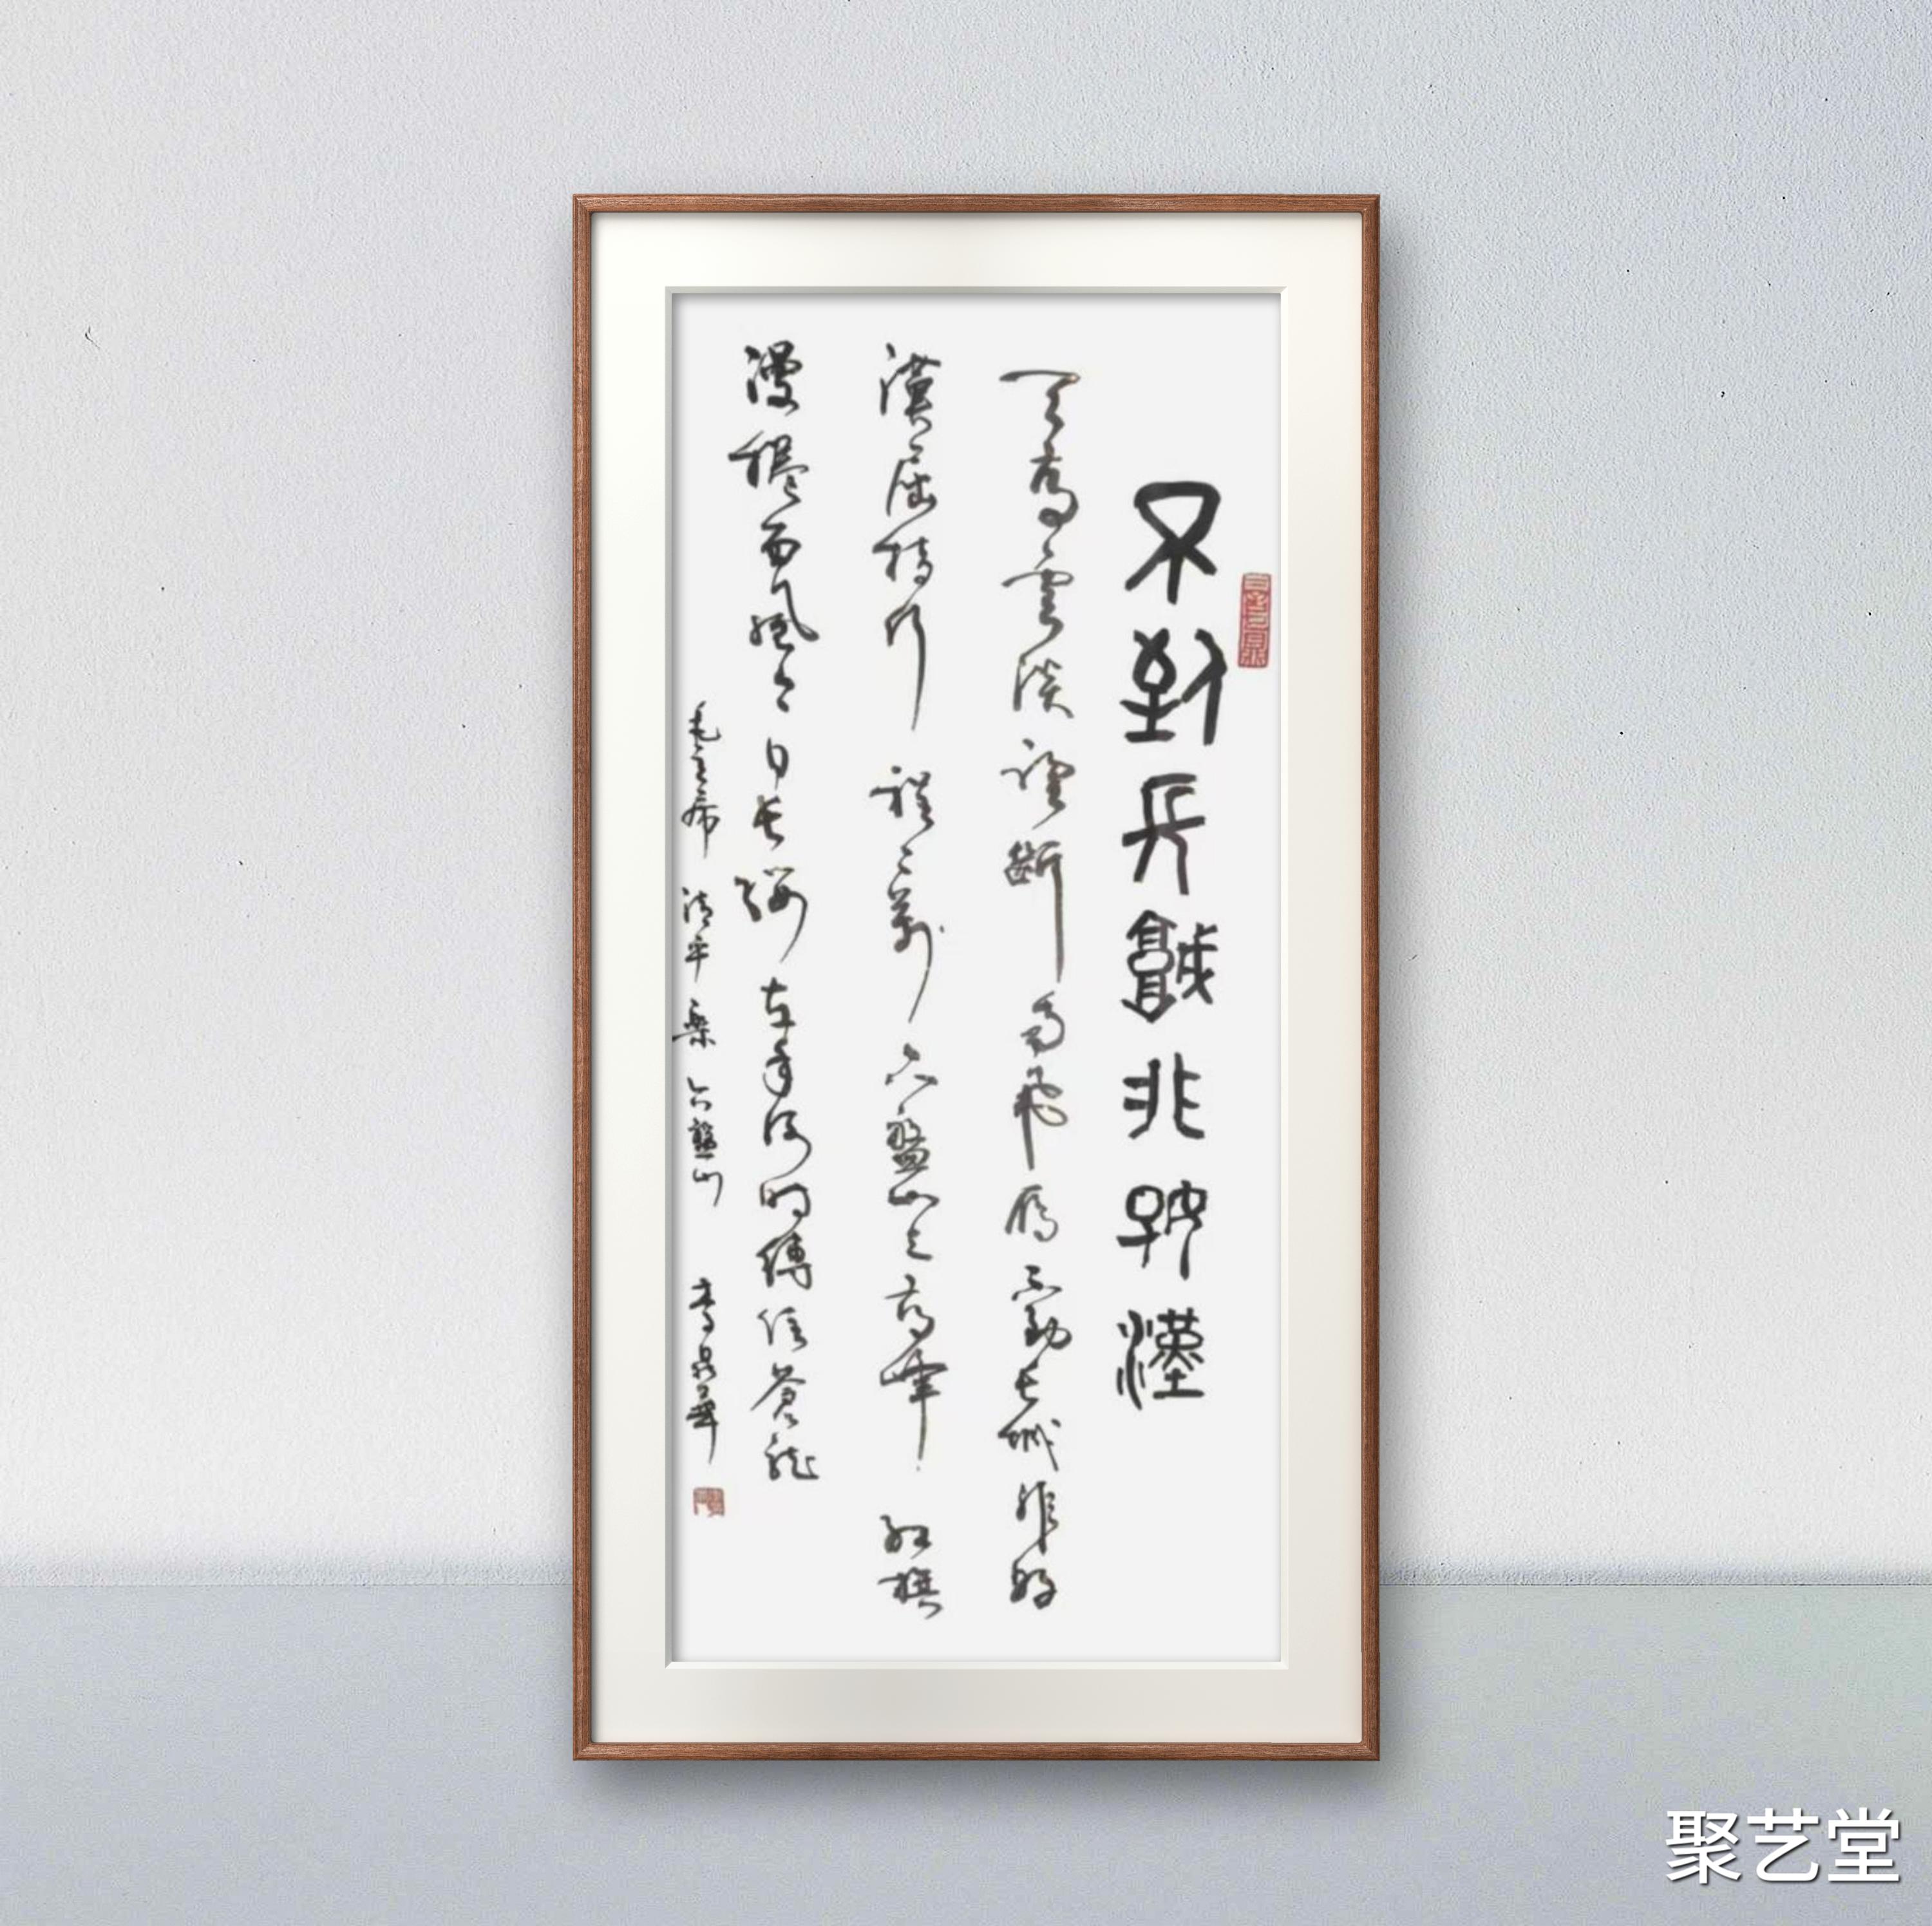 不到長城非好漢
天高雲淡望斷南飛雁不到長城非好
漢屈指行程二萬六盤山上高峰紅旗
漫捲西風今日長纓在手何時縛住蒼龍
毛主席清平樂六盤山 李
聚艺堂